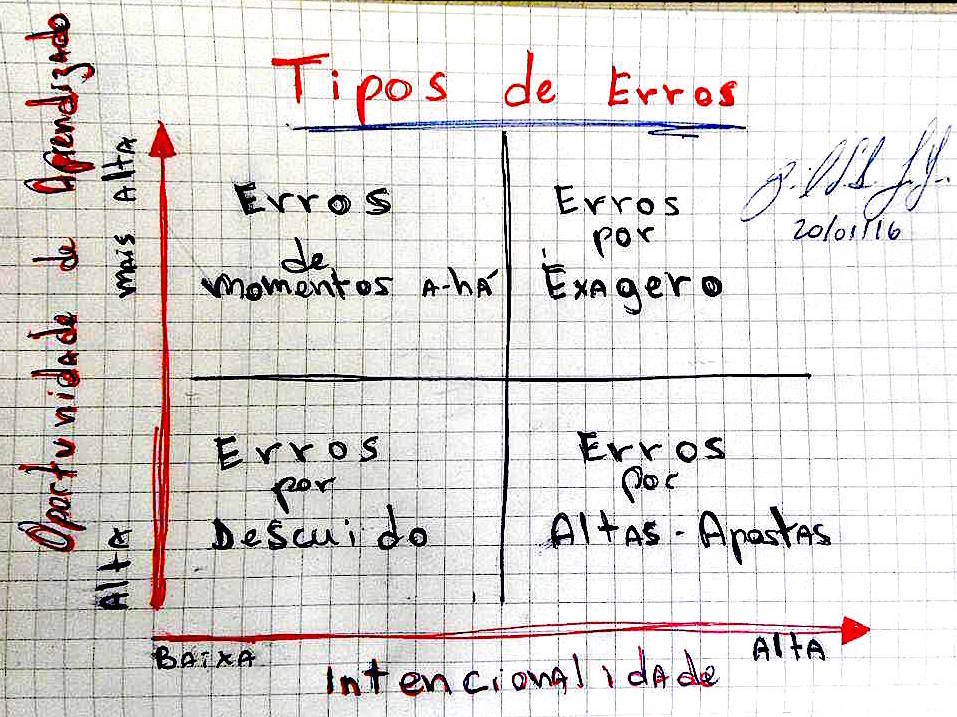 Tipos de Erros
Oportunidade de Aprendizado
mais Alta
Alta
Erros
de
momentos A-há
Erros
por
Exagero
20/01/16
Erros
por
Descuido
Erros
por
Altas-Apostas
Baixa
Alta
Intencionalidade